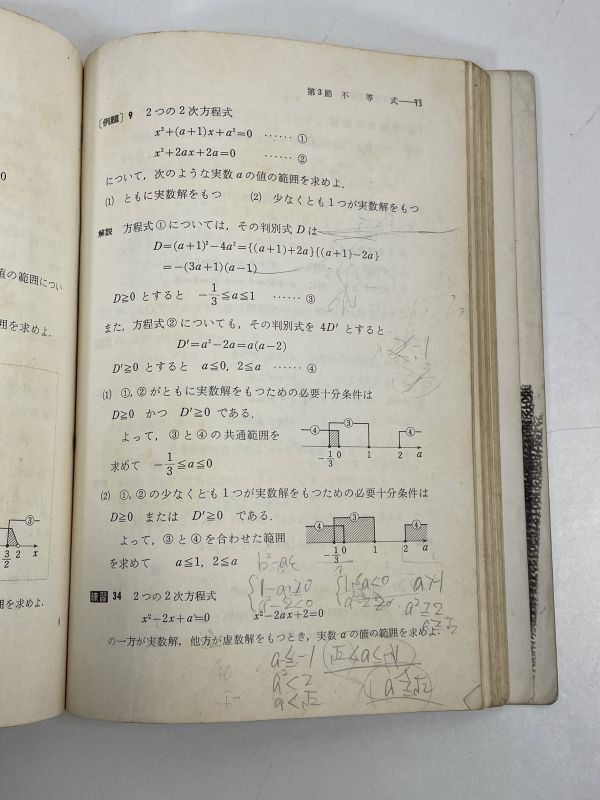 0
値の範囲につい
囲を求めよ.
③
3/2 2 x
囲を求めよ.
第3節 不 等 式——93
例題 9 2つの2次方程式
x²+(a+1)x+a²=0 ……①
x²+2ax+2a=0 ……②
について，次のような実数 a の値の範囲を求めよ.
(1) ともに実数解をもつ (2) 少なくとも1つが実数解をもつ
解説 方程式①については，その判別式 D は
D=(a+1)²−4a²={(a+1)+2a}{(a+1)−2a}
=−(3a+1)(a−1)
D≧0 とすると −1/3≦a≦1 ……③
また，方程式②についても，その判別式を 4D′ とすると
D′=a²−2a=a(a−2)
D′≧0 とすると a≦0, 2≦a ……④
(1) ①,②がともに実数解をもつための必要十分条件は
D≧0 かつ D′≧0 である.
よって，③と④の共通範囲を
求めて −1/3≦a≦0
④ ③ ④
−1/3 0 1 2 a
(2) ①,②の少なくとも1つが実数解をもつための必要十分条件は
D≧0 または D′≧0 である.
よって，③と④を合わせた範囲
を求めて a≦1, 2≦a
④ ③ ④
−1/3 0 1 2 a
練習 34 2つの2次方程式
x²−2x+a=0 x²−2ax+2=0
の一方が実数解，他方が虚数解をもつとき，実数 a の値の範囲を求めよ.
1-a≧0
a²-2<0
a²≧2
a≦-1
a²<2
a<√2